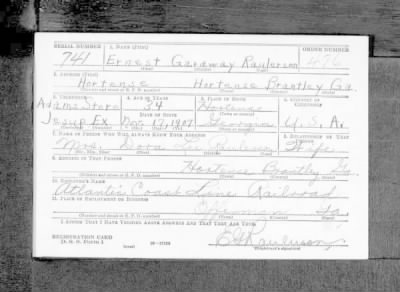 SERIAL NUMBER 1. NAME (Print) ORDER NUMBER
741 Ernest Garaway Raulerson 476
2. ADDRESS (Print)
Hortense Hortense Brantley Ga.
3. TELEPHONE 4. AGE IN YEARS 5. PLACE OF BIRTH 6. COUNTRY OF CITIZENSHIP
Adams Store 34 Hortense
DATE OF BIRTH
Jesup Ex Dec 17, 1907 Georgia U. S. A.
7. NAME OF PERSON WHO WILL ALWAYS KNOW YOUR ADDRESS 8. RELATIONSHIP OF THAT PERSON
Mrs. Dora Raulerson Wife
9. ADDRESS OF THAT PERSON
Hortense Brantley Ga.
10. EMPLOYER'S NAME
Atlantic Coast Line Railroad
11. PLACE OF EMPLOYMENT OR BUSINESS
Offerman Ga.
I AFFIRM THAT I HAVE VERIFIED ABOVE ANSWERS AND THAT THEY ARE TRUE.
REGISTRATION CARD
D. S. S. Form 1 E G Raulerson
(Registrant's signature)